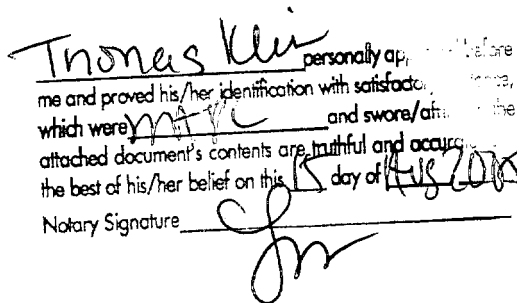 Thomas Klein personally ap before
me and proved his/her identification with satisfactory
which were and swore/aff the
attached document's contents are truthful and accura
the best of his/her belief on this 15 day of Aug
Notary Signature